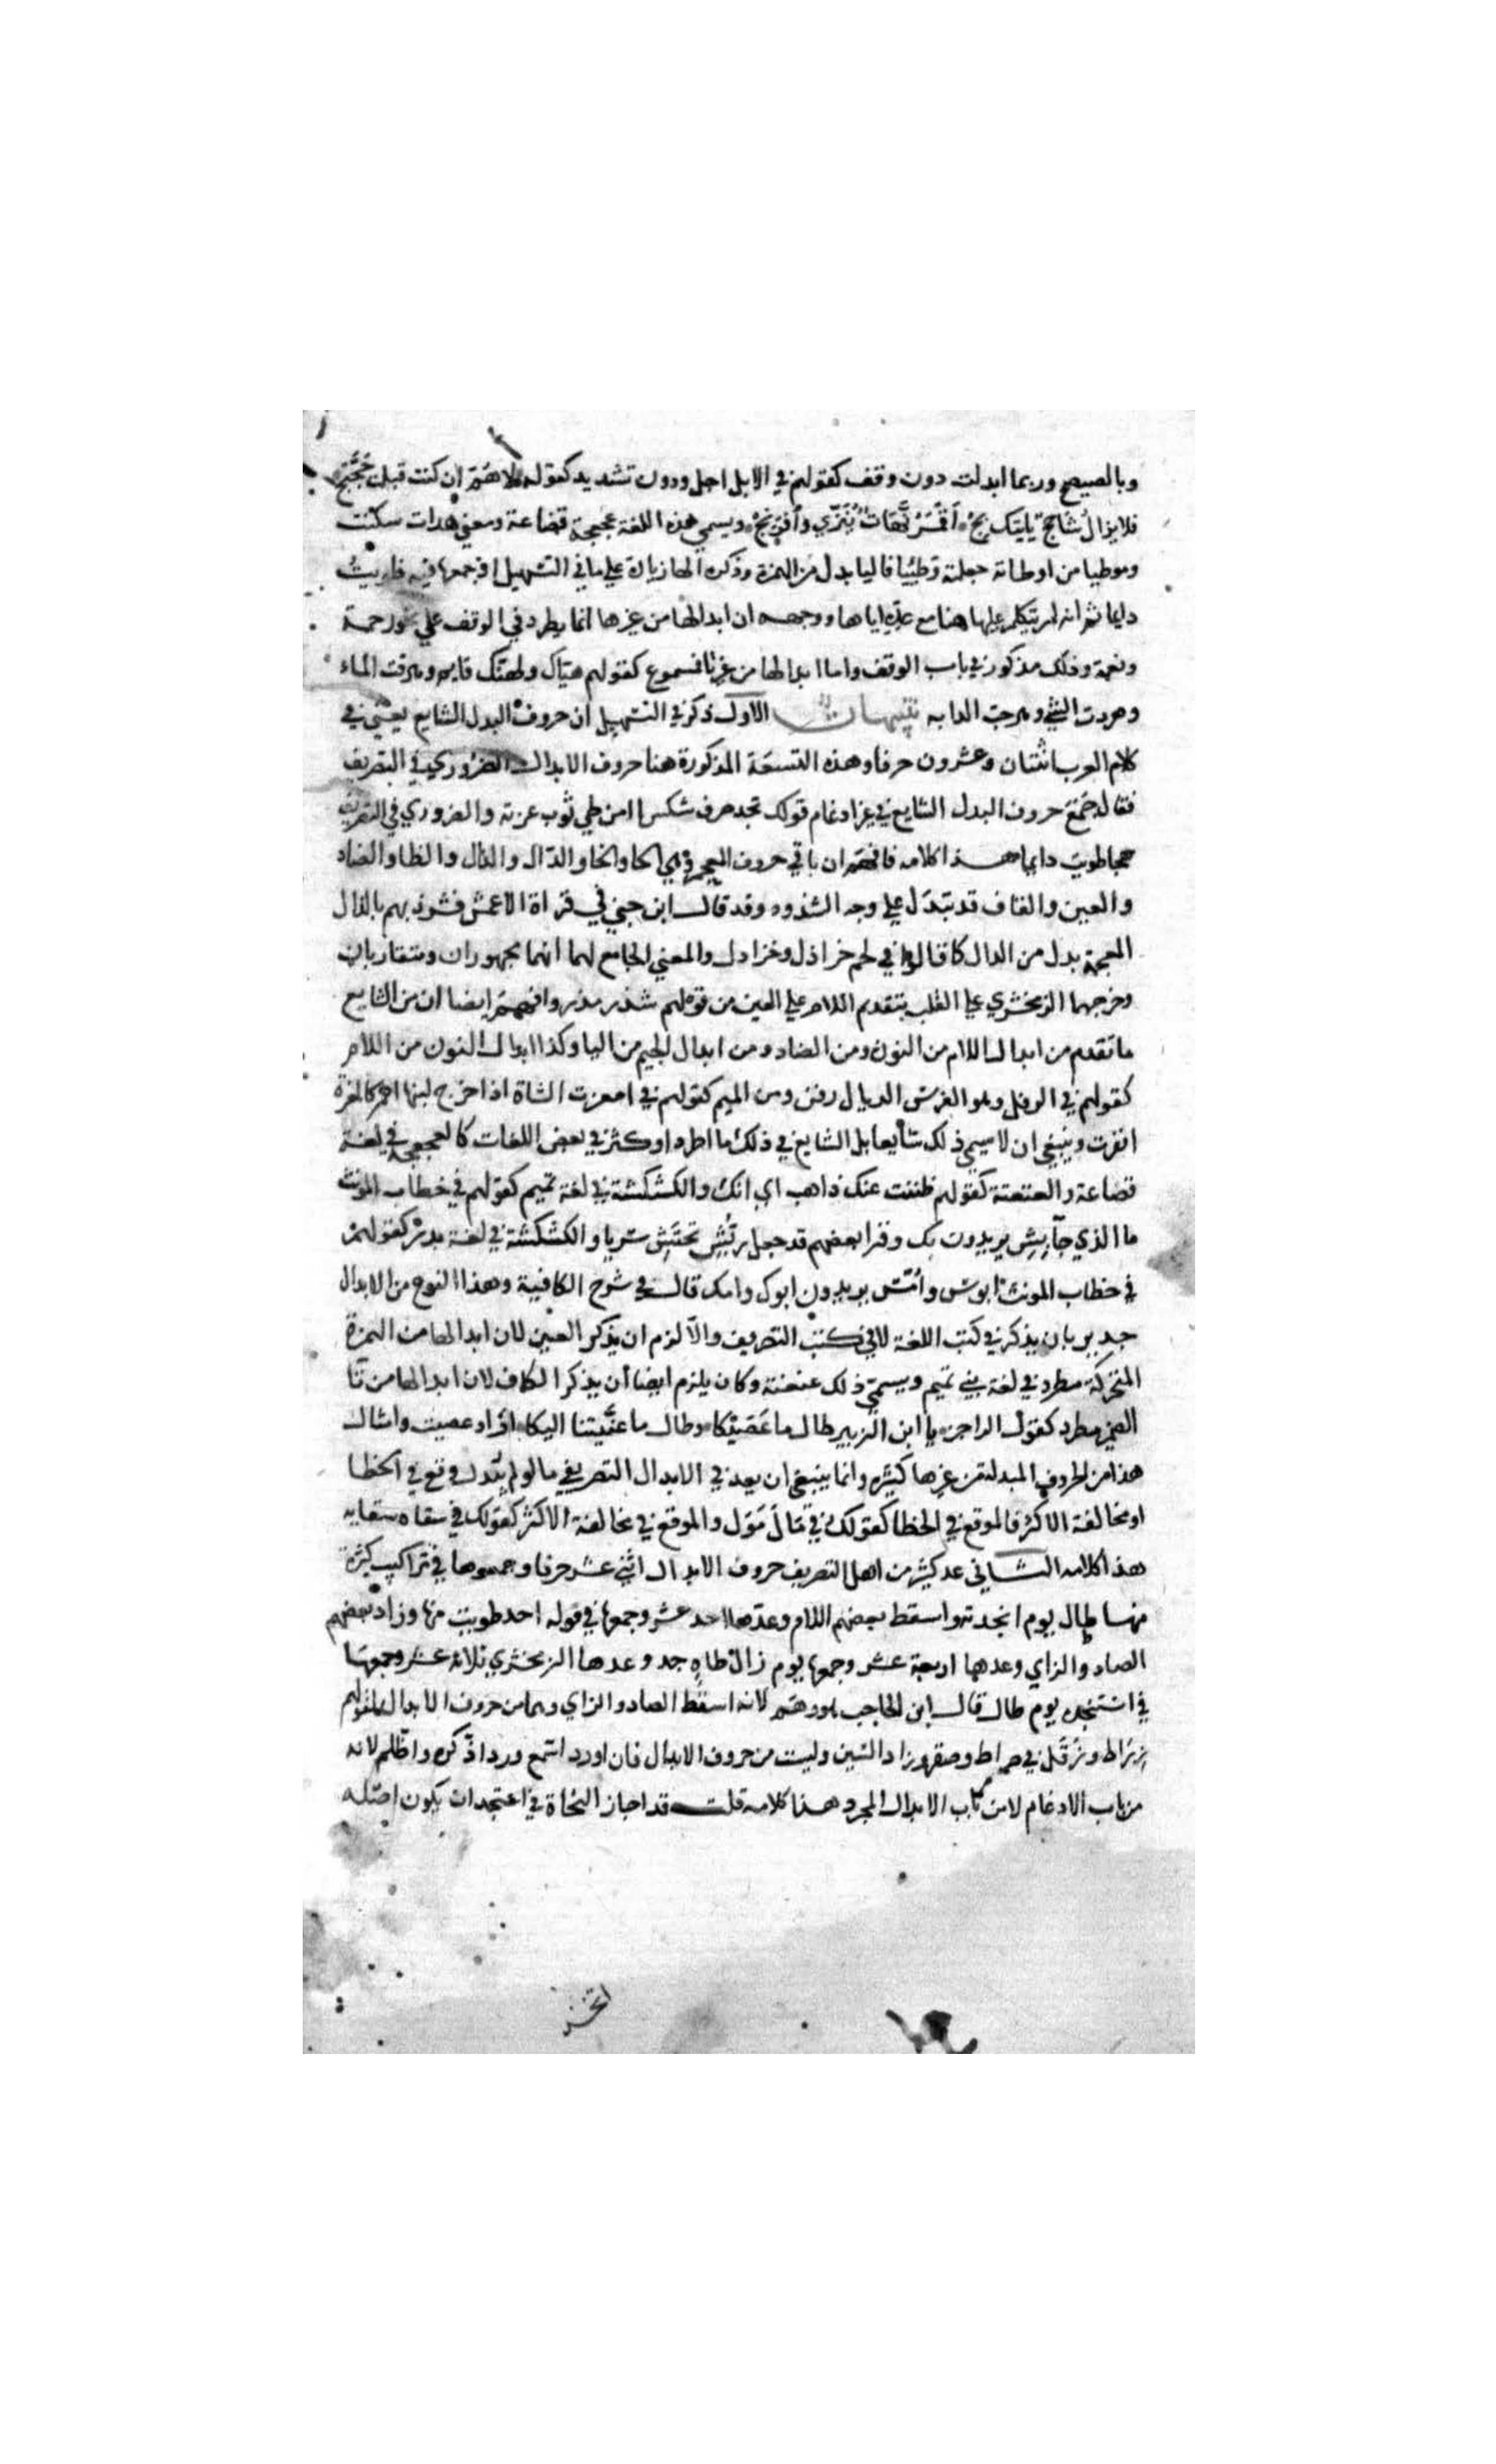 وبالصيصج وربما ابدلت دون وقف كقولهم في الايل اجل ودون تشديد كقوله لاهم ان كنت قبلت حجتج
فلا يزال شاحج ياتيك بج اقمر نهات ينزي وفرتج ويسمي هذه اللغة عجعجة قضاعة ومعني هدات سكنت
وموطيا من اوطاته جعلته وطيئا فاليا بدل من الهمزة وذكره الها زيادة علي ما في التسهيل اذ جمعها فيه في طويت
دايما ثم انه لم يتكلم عليها هنا مع عده اياها ووجهه ان ابدالها من غيرها انما يطرد في الوقف علي نحو رحمة
ونعمة وذلك مذكور في باب الوقف واما ابدالها من غير تا فمسموع كقولهم هياك ولهنك قايم وهرقت الماء
وهردت الشي وهرحت الدابه تنبيهات الاول ذكر في التسهيل ان حروف البدل الشايع يعني في
كلام العرب اثنتان وعشرون حرفا وهذه التسعة المذكورة هنا حروف الابدال الضروري في التصريف
فقال يجمع حروف البدل الشايع في غير ادغام قولك لجد صرف شكس امن طي ثوب عزته والضروري في التصريف
هجا طويت دايما هذا كلامه فافهم ان باقي حروف المعجم وهي الحا والخا والذال والظا والضاد
والعين والقاف قد تبدل علي وجه الشذوذ وقد قال ابن جني في قراة الاعمش فشرذ بهم بالذال
المعجمة بدل من الدال كما قالوا في لحم خراذل وخرادل والمعني الجامع لهما انهما مجهوران ومتقاربان
وخرجها الزمخشري علي القلب بتقديم اللام علي العين من قولهم شذر مذر وافهم ايضا ان من الشايع
ما تقدم من ابدال اللام من النون ومن الضاد ومن ابدال الجيم من اليا وكذا ابدال النون من اللام
كقولهم في الرفل وهو الفرس الذيال رفن ومن الميم كقولهم في امغرت الشاة اذا خرج لبنها احمر كالمغرة
انغرت وينبغي ان لا يسمي ذلك شايعا بل الشايع في ذلك ما اطرد او كثر في بعض اللغات كالعجعجة في لغة
قضاعة والعنعنة كقولهم ظننت عنك ذاهب اي انك والكشكشة في لغة تميم كقولهم في خطاب المونث
ما الذي جا بش يريدون بك وقرا بعضهم قد جعل ربش تحتش سريا والكسكسة في لغة بكر كقولهم
في خطاب المونث ابوس وامس يريدون ابوك وامك قال في شرح الكافية وهذا النوع من الابدال
جدير بان يذكر في كتب اللغة لا في كتب التصريف والا لزم ان يذكر العين لان ابدالها من الهمزة
المتحركة مطرد في لغة بني تميم ويسمي ذلك عنعنة وكان يلزم ايضا ان يذكر الكاف لان ابدالها من تا
الضمير مطرد كقول الراجز يا ابن الزبير طال ما عصيكا وطال ما عنيتنا اليكا اراد عصيت وامثال
هذا من الحروف المبدلة من غيرها كثيرة وانما ينبغي ان يعد في الابدال التصريفي ما لو لم يبدل وقع في الخطا
او مخالفة الاكثر فالموقع في الخطا كقولك في مال مول والموقع في مخالفة الاكثر كقولك في سقاه سقايه
هذا كلامه الثاني عد كثير من اهل التصريف حروف الابدال اثني عشر حرفا وجمعوها في تراكيب كثيرة
منها طال يوم انجدته واسقط بعضهم اللام وعدها احد عشر وجمعها في قوله اجد طويت منها وزاد بعضهم
الصاد والزاي وعدها اربعة عشر وجمعها يوم زال طاه جد وعدها الزمخشري ثلاثة عشر وجمعها
في استنجده يوم طال قال ابن الحاجب هو وهم لانه اسقط الصاد والزاي وهما من حروف الابدال لقولهم
زراط وزقر في صراط وصقر وزاد السين وليست من حروف الابدال فان اورد اسمع ورد اذكر واظلم لانه
من باب الادغام لا من باب الابدال المجرد هذا كلامه قلت قد اجاز النحاة في استخذ ان يكون اصله
اتخذ